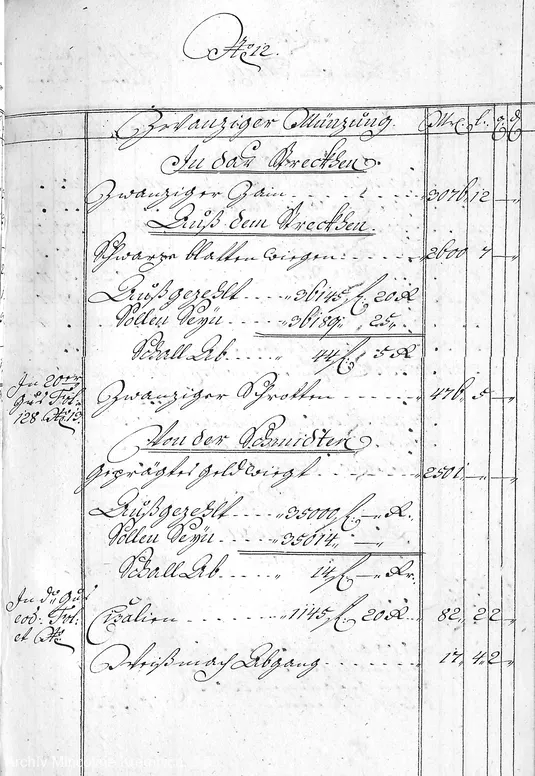 No 12.
Zwanziger Münzung. Mrc. l. q d
In das Streckhen.
Zwanziger Zain 3076 12 —
Auß dem Streckhen.
Schwarze blatten wiegen 2600 7 —
Außgezehlt 36145 f. 20 K
Sollen Seyn 36189 25
Schall Ab 44 f. 5 K
In 20er
guß Fol:
128 No 13
Zwanziger Schrotten 476 5 —
Von der Schmidten
Geprägtes geld wiegt 2501 — —
Außgezehlt 35000 f. — K.
Sollen Seyn 35014 —
Schall Ab 14 f. — Kr.
In do guß
eod: Fol:
et No
Cisalien 1145 f. 20 K 82 2 2
Weißmach Abgang 17 4 2